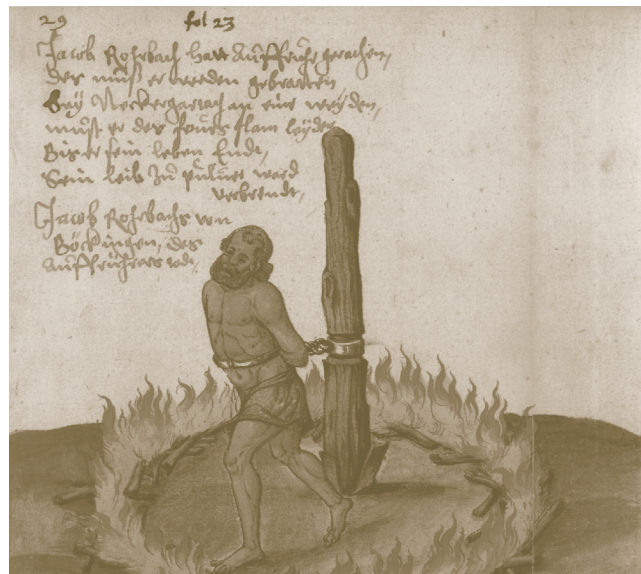 29 fol 23
Jacob Rohrbach hatt Auffruhr gerathen,
der must er werden gebratten
Bey Neckergartach an eine weyden,
must er des feures flam leyden
Bis er sein leben Endt,
Sein leib zu puluer ward
verbrendt,
Jacob Rohrbachs von
Böckingen, des
Auffrührers tod,